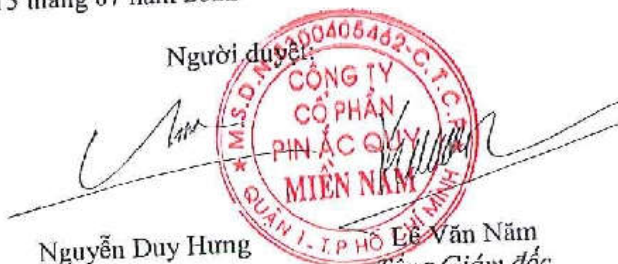 tháng 07 năm
Người duyệt:
M.S.D.N: 0300405462-C.T.C.P
CÔNG TY
CỔ PHẦN
PIN ẮC QUY
MIỀN NAM
QUẬN 1 - T.P HỒ CHÍ MINH
Nguyễn Duy Hưng
Lê Văn Năm
Tổng Giám đốc